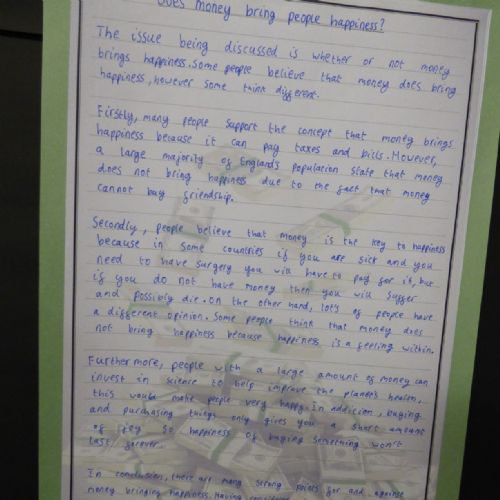 Does money bring people happiness?
The issue being discussed is whether or not money
brings happiness. Some people believe that money does bring
happiness, however some think different.
Firstly, many people support the concept that money brings
happiness because it can pay taxes and bills. However,
a large majority of England's population state that money
does not bring happiness due to the fact that money
cannot buy friendship.
Secondly, people believe that money is the key to happiness
because in some countries if you are sick and you
need to have surgery you will have to pay for it, but
if you do not have money then you will suffer
and possibly die. On the other hand, lot's of people have
a different opinion. Some people think that money does
not bring happiness because happiness is a feeling within.
Furthermore, people with a large amount of money can
invest in science to help improve the planet's health,
this would make people very happy. In addicion, buying
and purchasing things only gives you a short amount
of joy so happiness of buying something won't
last forever.
In conclusion, there are many strong points for and against
money bringing happiness. Having considered